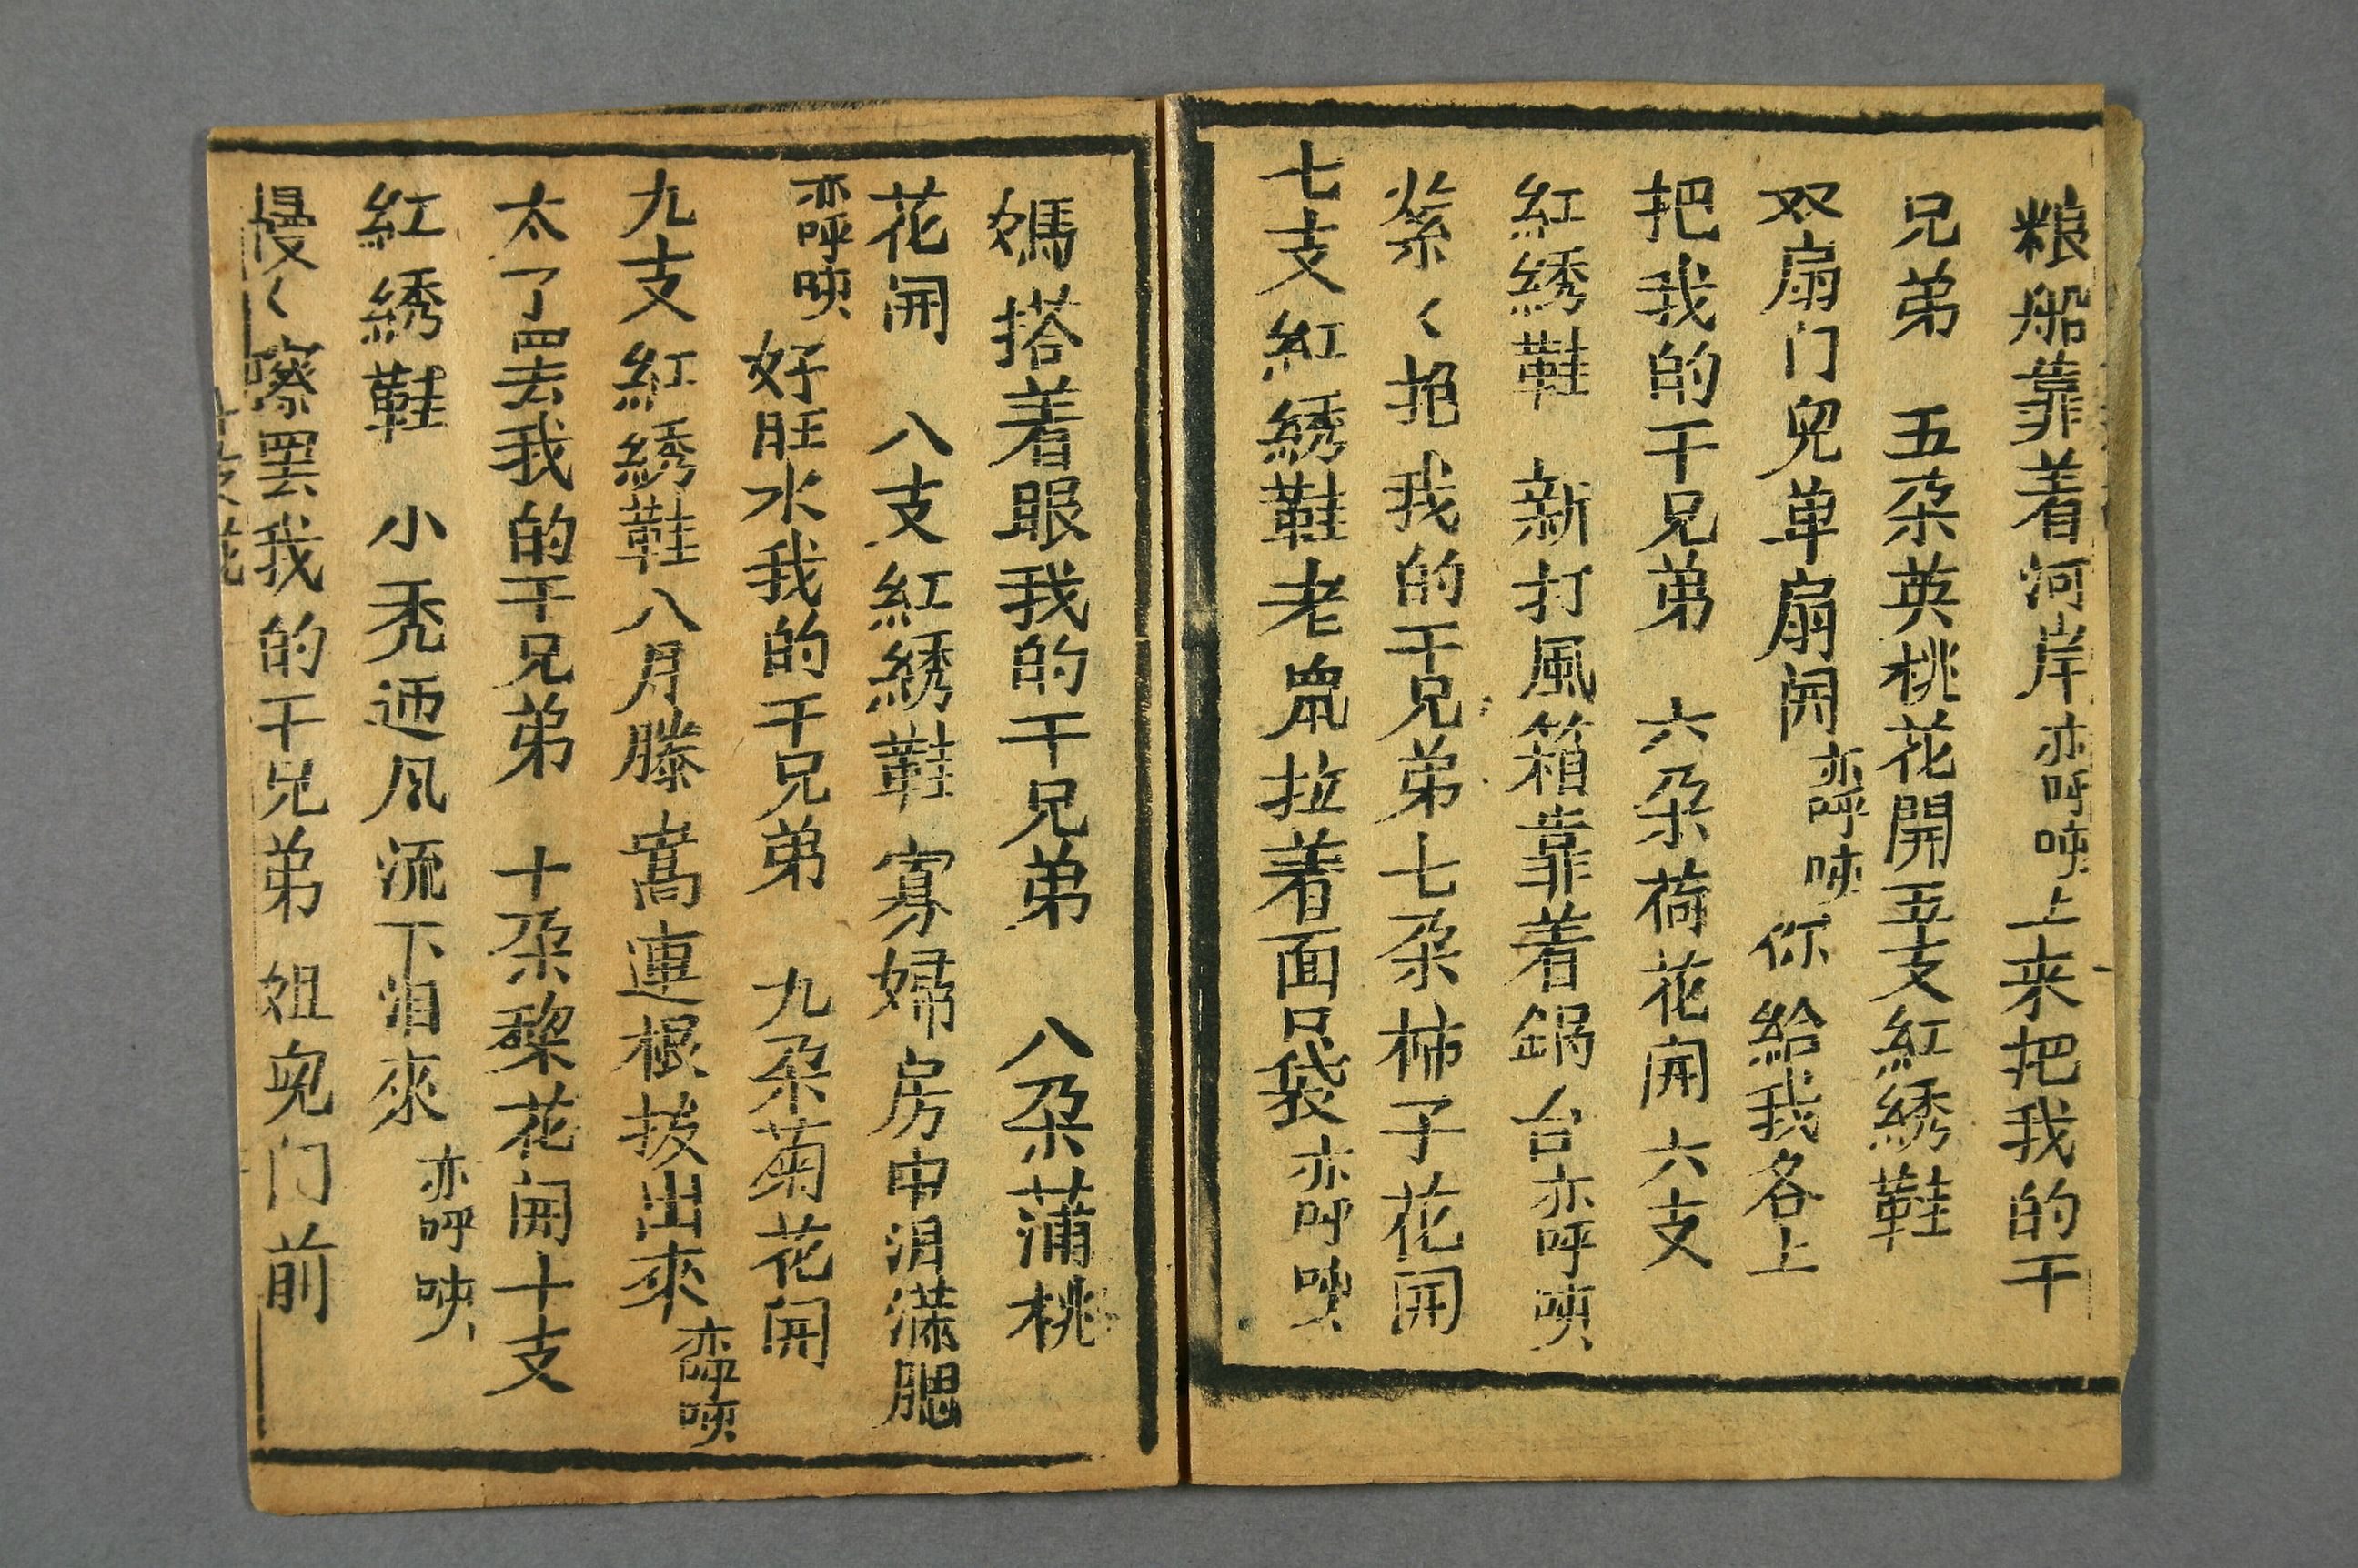 粮船靠着河岸亦呼咦上来把我的干
兄弟 五朶英桃花開五支紅綉鞋
双扇门兒单扇闲亦呼咦 你給我各上
把我的干兄弟 六朶荷花闲六支
紅綉鞋 新打風箱靠着鍋台亦呼咦
紧〻抱我的干兄弟七朶柿子花闲
七支紅綉鞋老鼠拉着面口袋亦呼咦
媽搭着眼我的干兄弟 八朶蒲桃
花闲 八支紅綉鞋寡婦房中泪满腮
亦呼咦 好旺水我的干兄弟 九朶菊花闲
九支紅綉鞋八月滕蒿連根拔出來亦呼咦
太了罢我的干兄弟 十朶黎花闲十支
紅綉鞋 小秃迊风流下泪來 亦呼咦
慢〻嚓罢我的干兄弟 姐兒门前